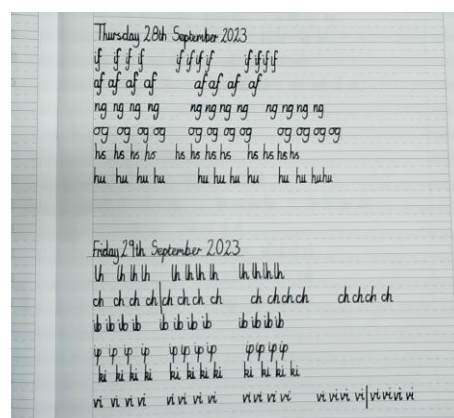 Thursday 28th September 2023
if if if if if if if if if if if if
af af af af af af af af
ng ng ng ng ng ng ng ng ng ng ng ng
og og og og og og og og og og og og
hs hs hs hs hs hs hs hs hs hs hs hs
hu hu hu hu hu hu hu hu hu hu huhu
Friday 29th September 2023
lh lh lh lh lh lh lh lh lh lh lh lh
ch ch ch ch ch ch ch ch ch ch ch ch ch ch ch ch
ib ib ib ib ib ib ib ib ib ib ib ib
ip ip ip ip ip ip ip ip ip ip ip ip
ki ki ki ki ki ki ki ki ki ki ki ki
vi vi vi vi vi vi vi vi vi vi vi vi vi vi vi vi vi vi vi vi